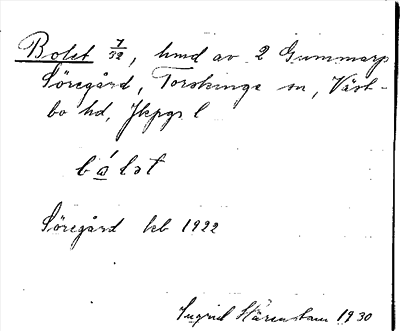 Bolet 7/32, hmd av 2 Gummarp
Söregård, Torskinge sn, Väst-
bo hd, Jkpgs l
bálət
Söregård kb 1922
Ingrid Stärenstam 1930